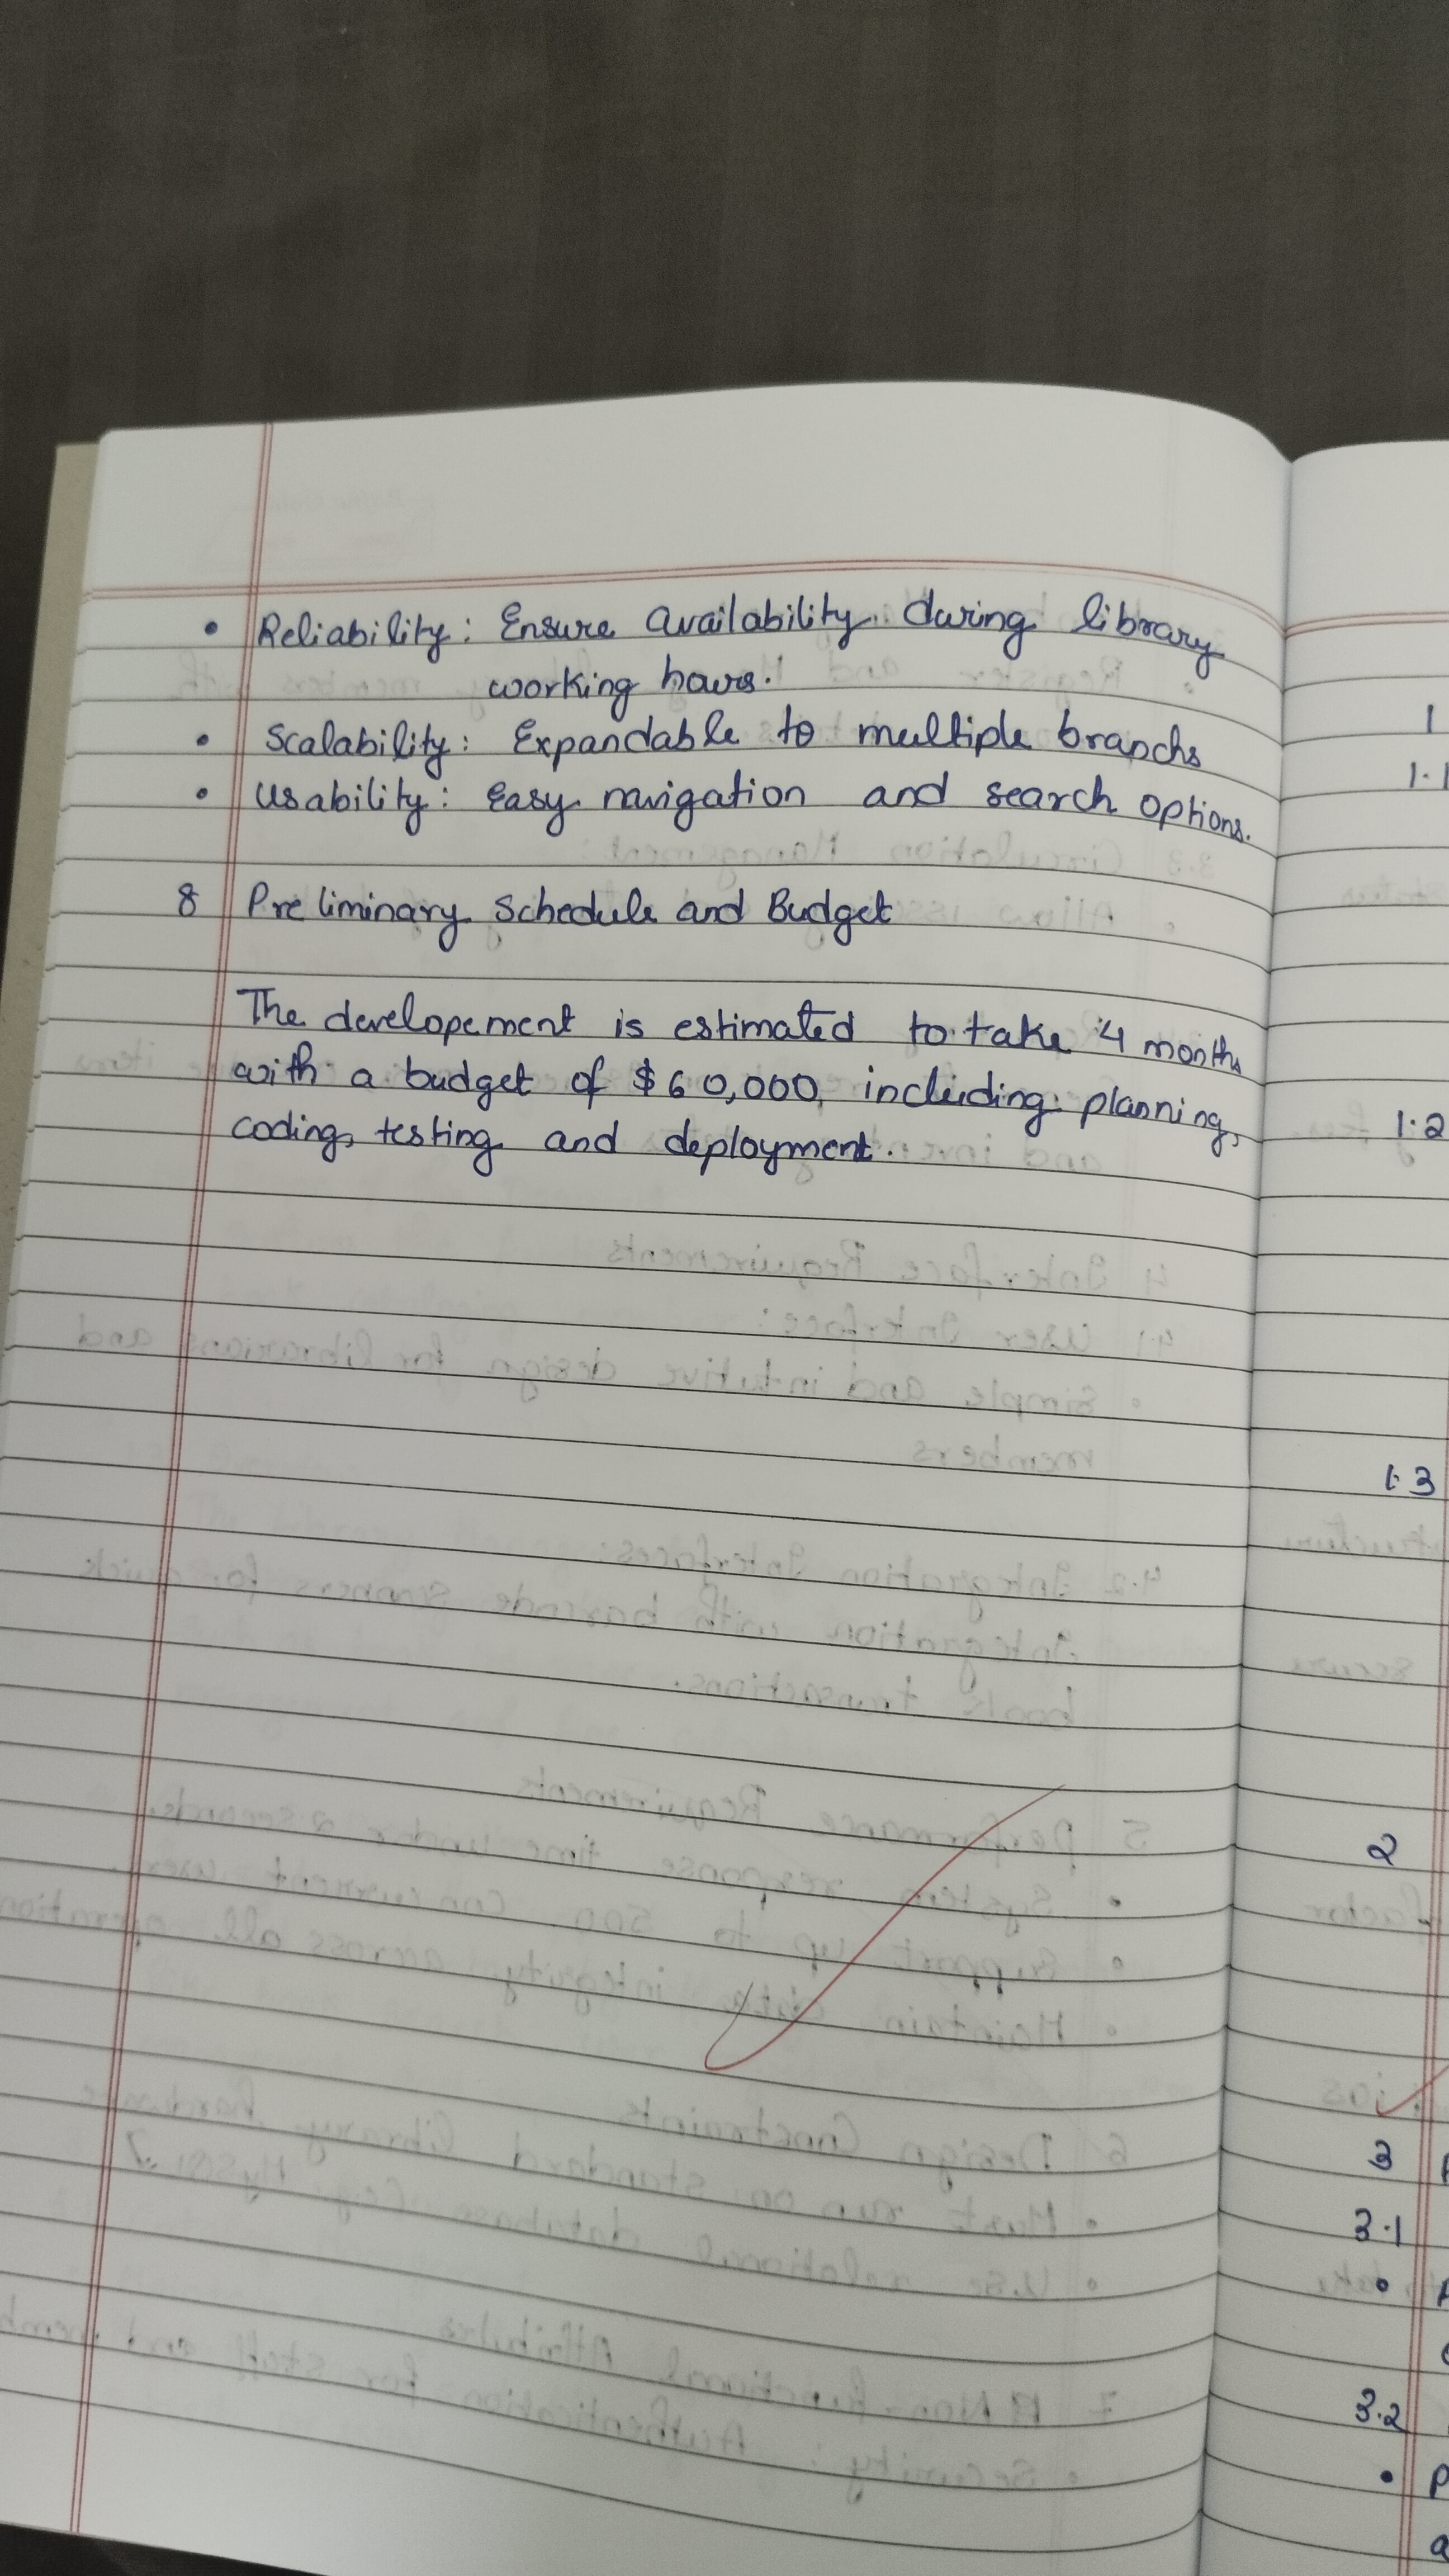 • Reliability: Ensure availability during library
working hours.
• Scalability: Expandable to multiple branchs
• Usability: Easy navigation and search options.
8 Preliminary Schedule and Budget
The developement is estimated to take 4 months
with a budget of $60,000, including planning,
coding, testing and deployment.
1
1.1
1.2
1.3
2
3
3.1
•
3.2
•